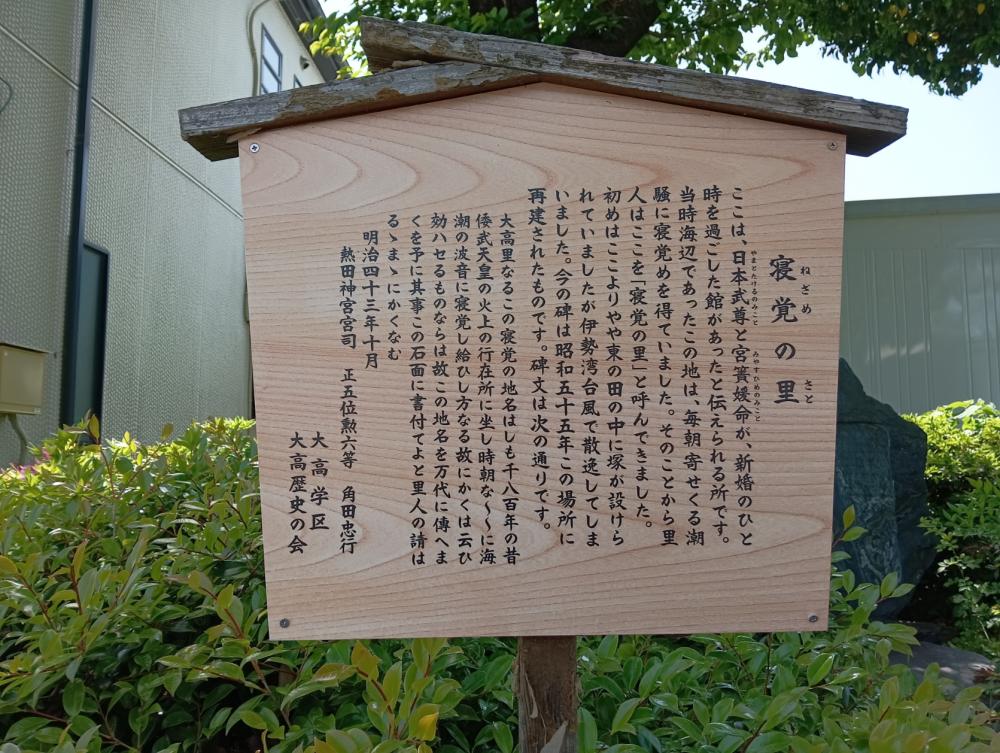 寝覚の里
ねざめ さと
ここは、日本武尊と宮簀媛命が、新婚のひと
やまとたけるのみこと みやすひめのみこと
時を過ごした館があったと伝えられる所です。
当時海辺であったこの地は、毎朝寄せくる潮
騒に寝覚めを得ていました。そのことから里
人はここを「寝覚の里」と呼んできました。
初めはここよりやや東の田の中に塚が設けら
れていましたが伊勢湾台風で散逸してしま
いました。今の碑は昭和五十五年この場所に
再建されたものです。碑文は次の通りです。
大高里なるこの寝覚の地名はしも千八百年の昔
倭武天皇の火上の行在所に坐し時朝な〜〜に海
潮の波音に寝覚し給ひし方なる故にかくは云ひ
効ハセるものならは故この地名を万代に傳へま
くを予に其事この石面に書付てよと里人の請は
るゝまゝにかくなむ
明治四十三年十月
熱田神宮宮司 正五位勲六等 角田忠行
大高学区
大高歴史の会